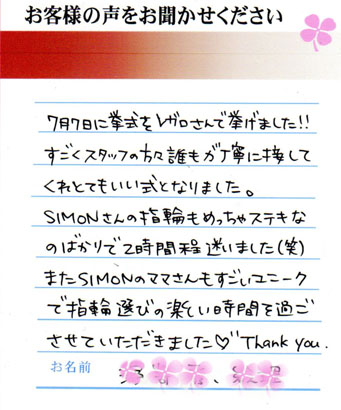 お客様の声をお聞かせください
7月7日に挙式をレガロさんで挙げました!!
すごくスタッフの方々誰もが丁寧に接して
くれとてもいい式となりました。
SIMONさんの指輪もめっちゃステキな
のばかりで2時間程迷いました(笑)
またSIMONのママさんもすごいユニーク
で指輪選びの楽しい時間を過ご
させていただきました♡ Thank you.
お名前